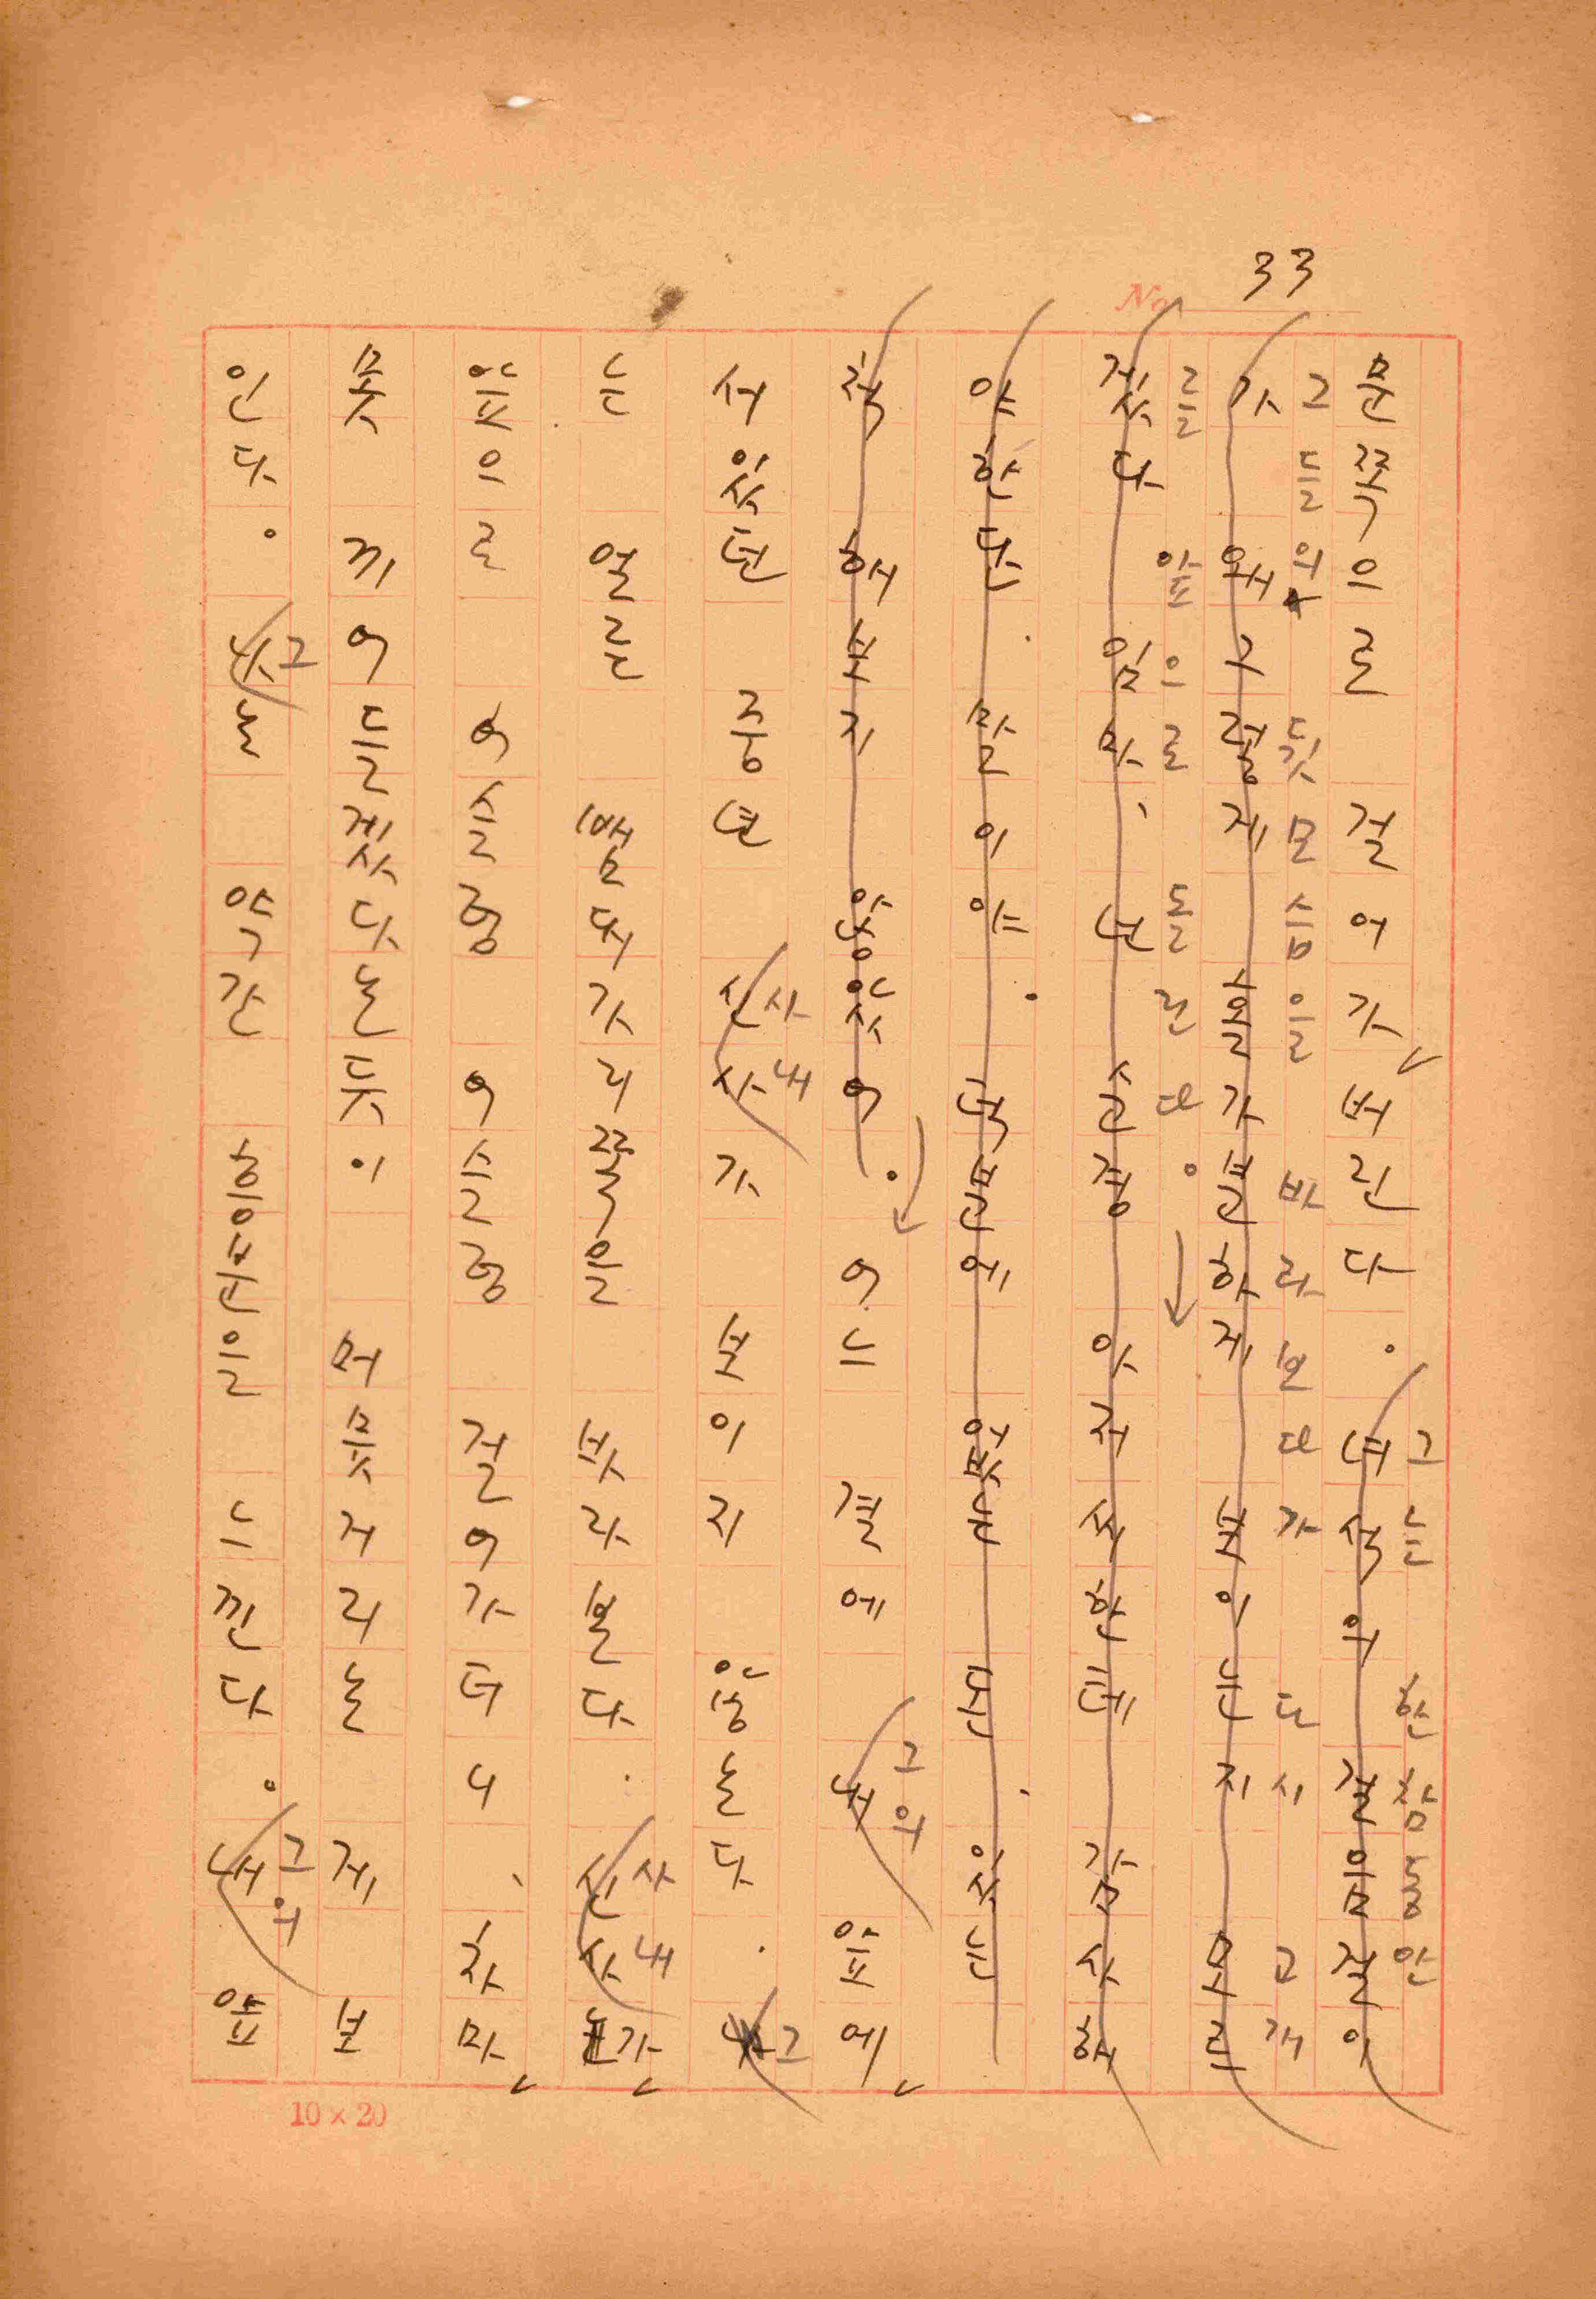 33
No.
그는 한참동안
문쪽으로 걸어가 버린다. 녀석의 걸음걸이
그들의 뒷모습을 바라보다가 다시 고개
가 왜 그렇게 하게 보이는지 모르
를 앞으로 돌린다.
겠다 임마, 넌 순경 아저씨한테 감사해
야 한다. 말이야. 덕분에 있는
그의
척 해보지 않았어. 어느 결에 내 앞에
사내 그
서 있던 중년 신사가 보이지 않는다. 나
사내
는 얼른 뱀대가리쪽을 바라본다. 신사가
앞으로 어슬렁 어슬렁 걸어가더니, 차마
못 끼어들겠다는 듯이 머뭇거리는 게 보
그 그의
인다. 나는 약간 느낀다. 내 앞
10×20